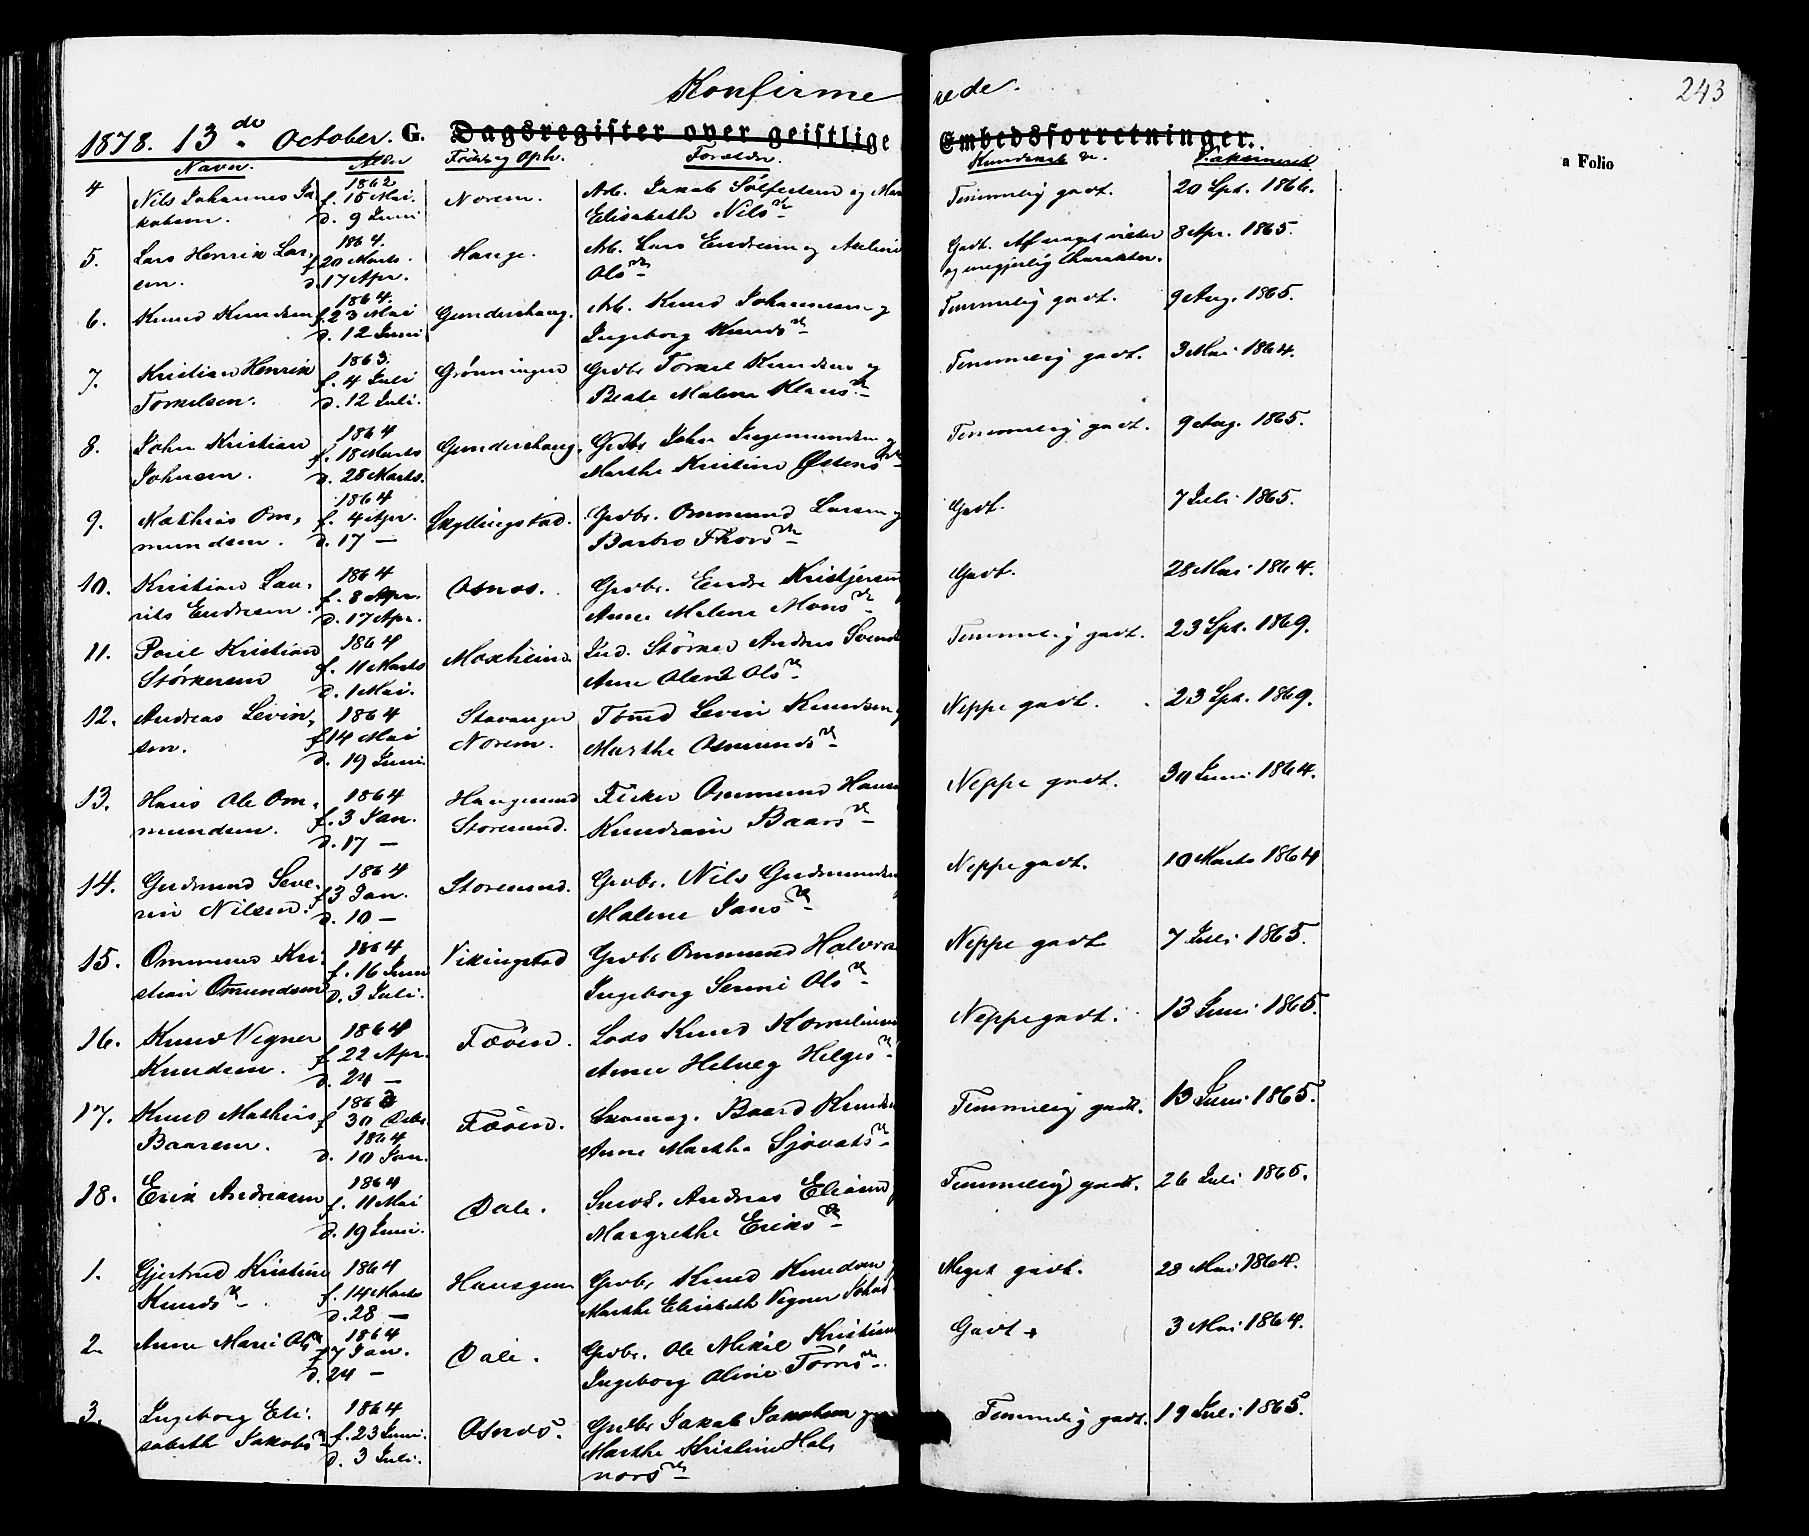 Konfirmerede.
243
1878. 13de October. G. Dagsregister over geistlige Embedsforretninger.
a Folio
Navn. Alder Fødst og Oph. Forældr. Kundskab &c. Vaksinerede
4 Nils Johannes Ja- 1862. f. 15 Mai. Norem. Arb. Jakob Solfestsen og Mar Temmelig godt. 20 Spt. 1866.
kobsen. d. 9 Juni Elisabeth Nilsdr
5. Lars Henrik Lar- 1864. f 20 Marts. Hauge. Arb. Lars Endresen og Godt. Af noget 8 Apr. 1865.
sen. d. 17 Apr. Olsdr og uregjerlig Charakter.
6. Knud Knudsen 1864. f. 23 Mai Gundershaug. Arb. Knud Johannesen og Temmelig godt. 9 Aug. 1865.
d. 12 Juni Ingeborg Knudsdr
7. Kristian Henrik 1863. f. 4 Juli Grønningen Grdbr Torkel Knudsen og Temmelig godt. 3 Mai 1864.
Torkelsen. d. 12 Juli. Beate Malene Klausdr
8. John Kristian 1864 f. 18 Marts Gundershaug. Grdbr John Ingemundsen og Temmelig godt. 9 Aug. 1865.
Johnsen. d. 28 Marts. Marthe Kristine Østensdr
9. Mathias Om- 1864 f. 4 Apr. Skyllingstad. Grdbr. Ommund Larsen og Godt. 7 Juli 1865.
mundsen. d. 17 — Barbro Thorsdr
10. Kristian Lau- 1864 f. 8 Apr. Osnes. Grdbr. Endre Godt. 28 Mai 1864.
rits Endresen. d. 17 Apr. Anne Malene Monsdr
11. Poul Kristian 1864 f. 11 Marts Ind. Størker Andreas Svends Temmelig godt. 23 Spt. 1869.
Størkersen d. 1 Mai. Anne Olene Olsdr
12. Andreas Levin- 1864 f 14 Mai Stavanger Tømd Levin Knudsen Neppe godt. 23 Spt. 1869.
sen. d. 19 Juni. Norem. Marthe Osmundsdr
13. Hans Ole Om- 1864 f. 3 Jan. Haugesund Fisker Ommund Hans Neppe godt. 30 Juni 1864.
mundsen. d. 17 — Storesund. Baarsdr
14. Gudmund Seve- 1864 f 3 Jan. Storesund. Grdbr. Nils Gudmundsen Neppe godt. 10 Marts 1864
rin Nilsen. d. 10 — Malene Jansdr
15. Ommund Kri- 1864 f. 16 Juni Vikingstad Grdbr Ommund Halvors Neppe godt 7 Juli 1865.
stian Omundsen d. 3 Juli. Ingeborg Serine Olsdr
16. Knud Vegner 1864 f. 22 Apr. Fæøen. Lods Knud Kornelius Neppe godt. 13 Juni 1865.
Knudsen. d. 24 — Anne Helveg Helgesdr
17. Knud Mathias 1863 f 30 Debr Fæøen. Baard Knudsen Temmelig godt. 13 Juni 1865.
Baarsen. 1864 d. 10 Jan. Anne Marthe Sjovatsdr
18. Erik Andreasen 1864 f. 11 Mai Dale. Andreas Eliasen Temmelig godt. 26 Juli 1865.
d. 19 Juni. Margrethe Eriksdr
1. Gjertrud Kristine 1864 f. 14 Marts Grdbr Knud Knudsen Meget godt. 28 Mai 1864.
Knudsdr. d. 28 — Marthe Elisabeth Vegner
2. Anne Marie Olsdr 1864 f 7 Jan. Dale. Grdbr. Ole Mikal Kristian Godt + 3 Mai 1864.
d. 24 — Ingeborg Oline
3. Ingeborg Eli- 1864 f. 23 Juni. Osnes. Grdbr Jakob Jakobsen og Temmelig godt. 19 Juli 1865.
sabeth Jakobsdr d. 3 Juli. Marthe Kristine Hal-
vorsdr